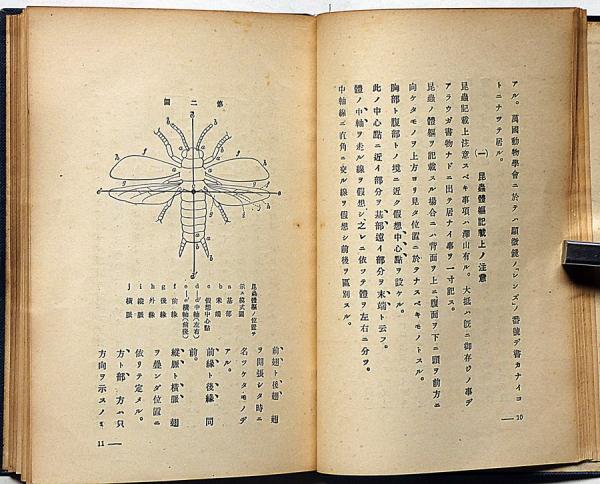 アル。萬國動物學會ニ於テハ顯微鏡ノ「レンズ」ノ番號デ書カナイコ
トニナツテ居ル。
(一) 昆蟲體軀記載上ノ注意
昆蟲記載上注意スベキ事項ハ澤山有ル。大抵ハ既ニ御存ジノ事デ
アラウガ書物ナドニ出テ居ナイ事ヲ一寸記ス。
昆蟲ノ體軀ヲ記載スル場合ニハ背面ヲ上ニ腹面ヲ下ニ頭ヲ前方ニ
向ケタモノヲ上方ヨリ見タ位置ニ於テナスベキモノトスル。
胸部ト腹部トノ境ニ近ク假想中心點ヲ設ケル。
此ノ中心點ニ近イ部分ヲ基部遠イ部分ヲ末端ト云フ。
體ノ中軸ヲ走ル線ヲ假想シ、之レニ依ツテ體ヲ左右ニ分ツ。
中軸線ニ直角ニ交ル線ヲ假想シ前後ヲ區別スル。
10
第二圖
昆蟲體軀ノ位置ヲ
示ス模式圖
a 基部
b 末端
c 假想中心點
d—d 中軸(左右)
e—e 橫軸(前後)
f 前緣
g 後緣
h 外緣
i 縱脈
j 橫脈
前翅ト後翅 翅
ヲ開張シタ時ニ
名ヅケタモノデ
アル。
前緣ト後緣 同
前。
縱脈ト橫脈 翅
ヲ疊ンダ位置ニ
依リテ定メル。
方ト部 方ハ只
方向ヲ示スノミ
11